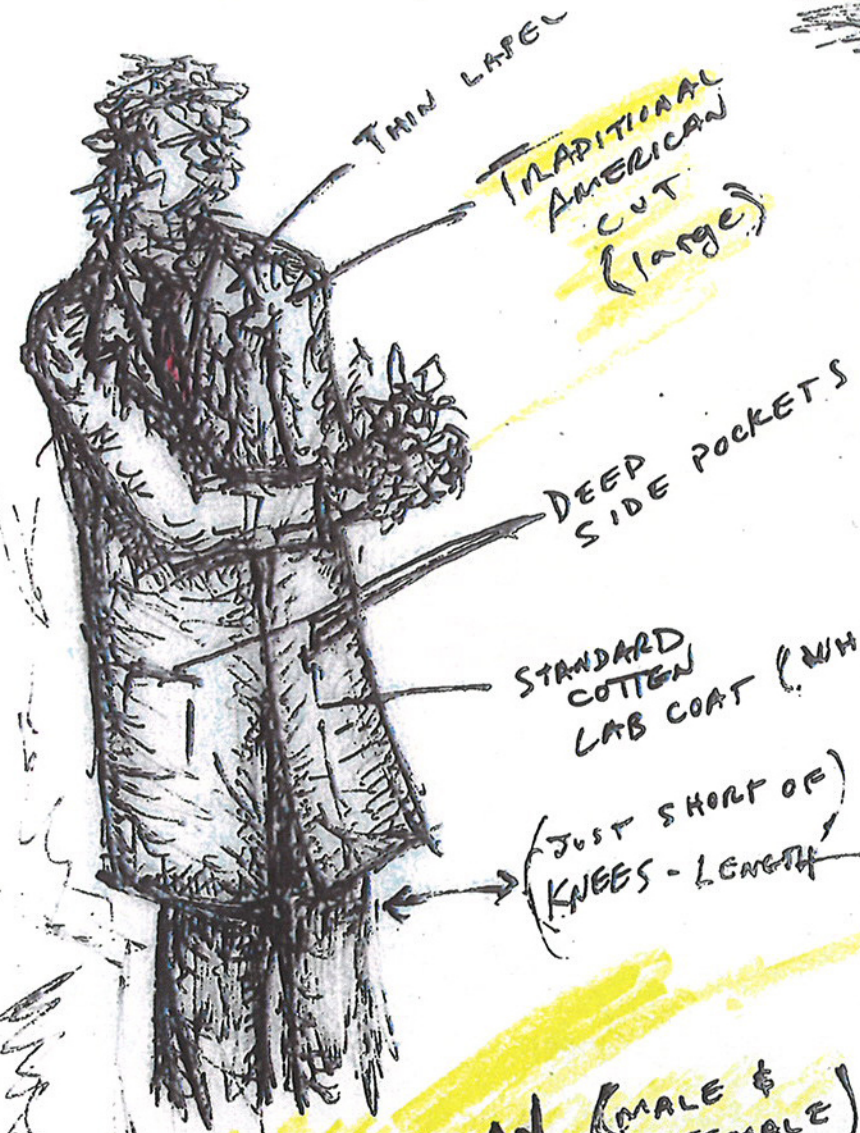 THIN LAPEL
TRADITIONAL
AMERICAN
CUT
(large)
DEEP
SIDE POCKETS
STANDARD
COTTEN
LAB COAT (WH
(JUST SHORT OF)
KNEES-LENGTH
(MALE &
FEMALE)